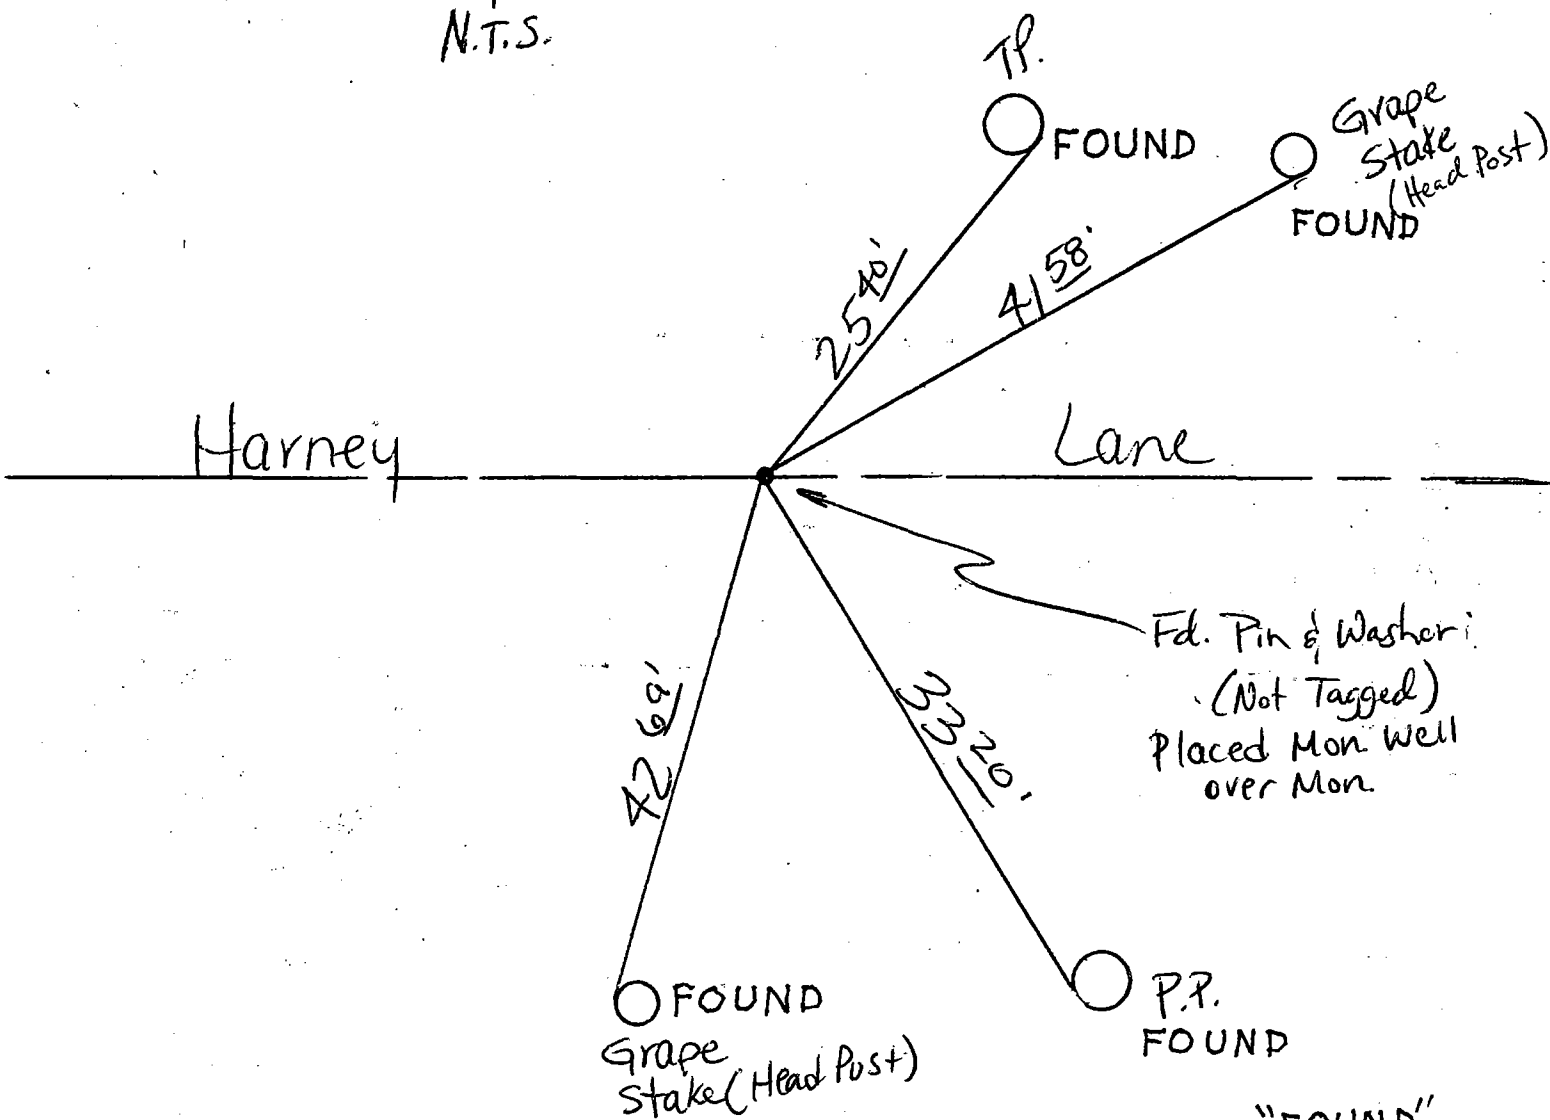 N.T.S.
T.P.
FOUND
Grape
Stake
(Head Post)
FOUND
25 40'
41 58'
Harney Lane
Fd. Pin & Washer
(Not Tagged)
Placed Mon. Well
over Mon.
42 69'
33 20'
FOUND
Grape
Stake (Head Post)
P.P.
FOUND
"FOUND"